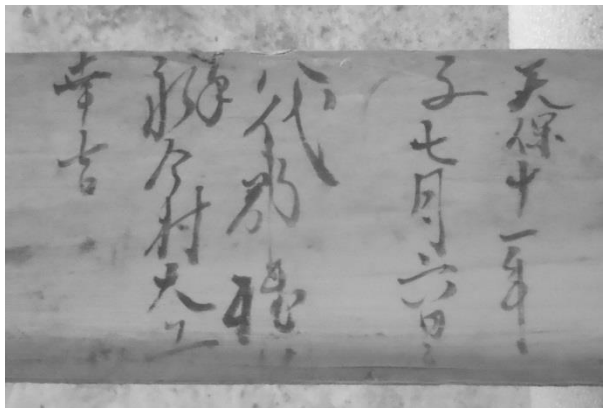 天保十一年
子七月六日
八代郡
今村大工
幸吉